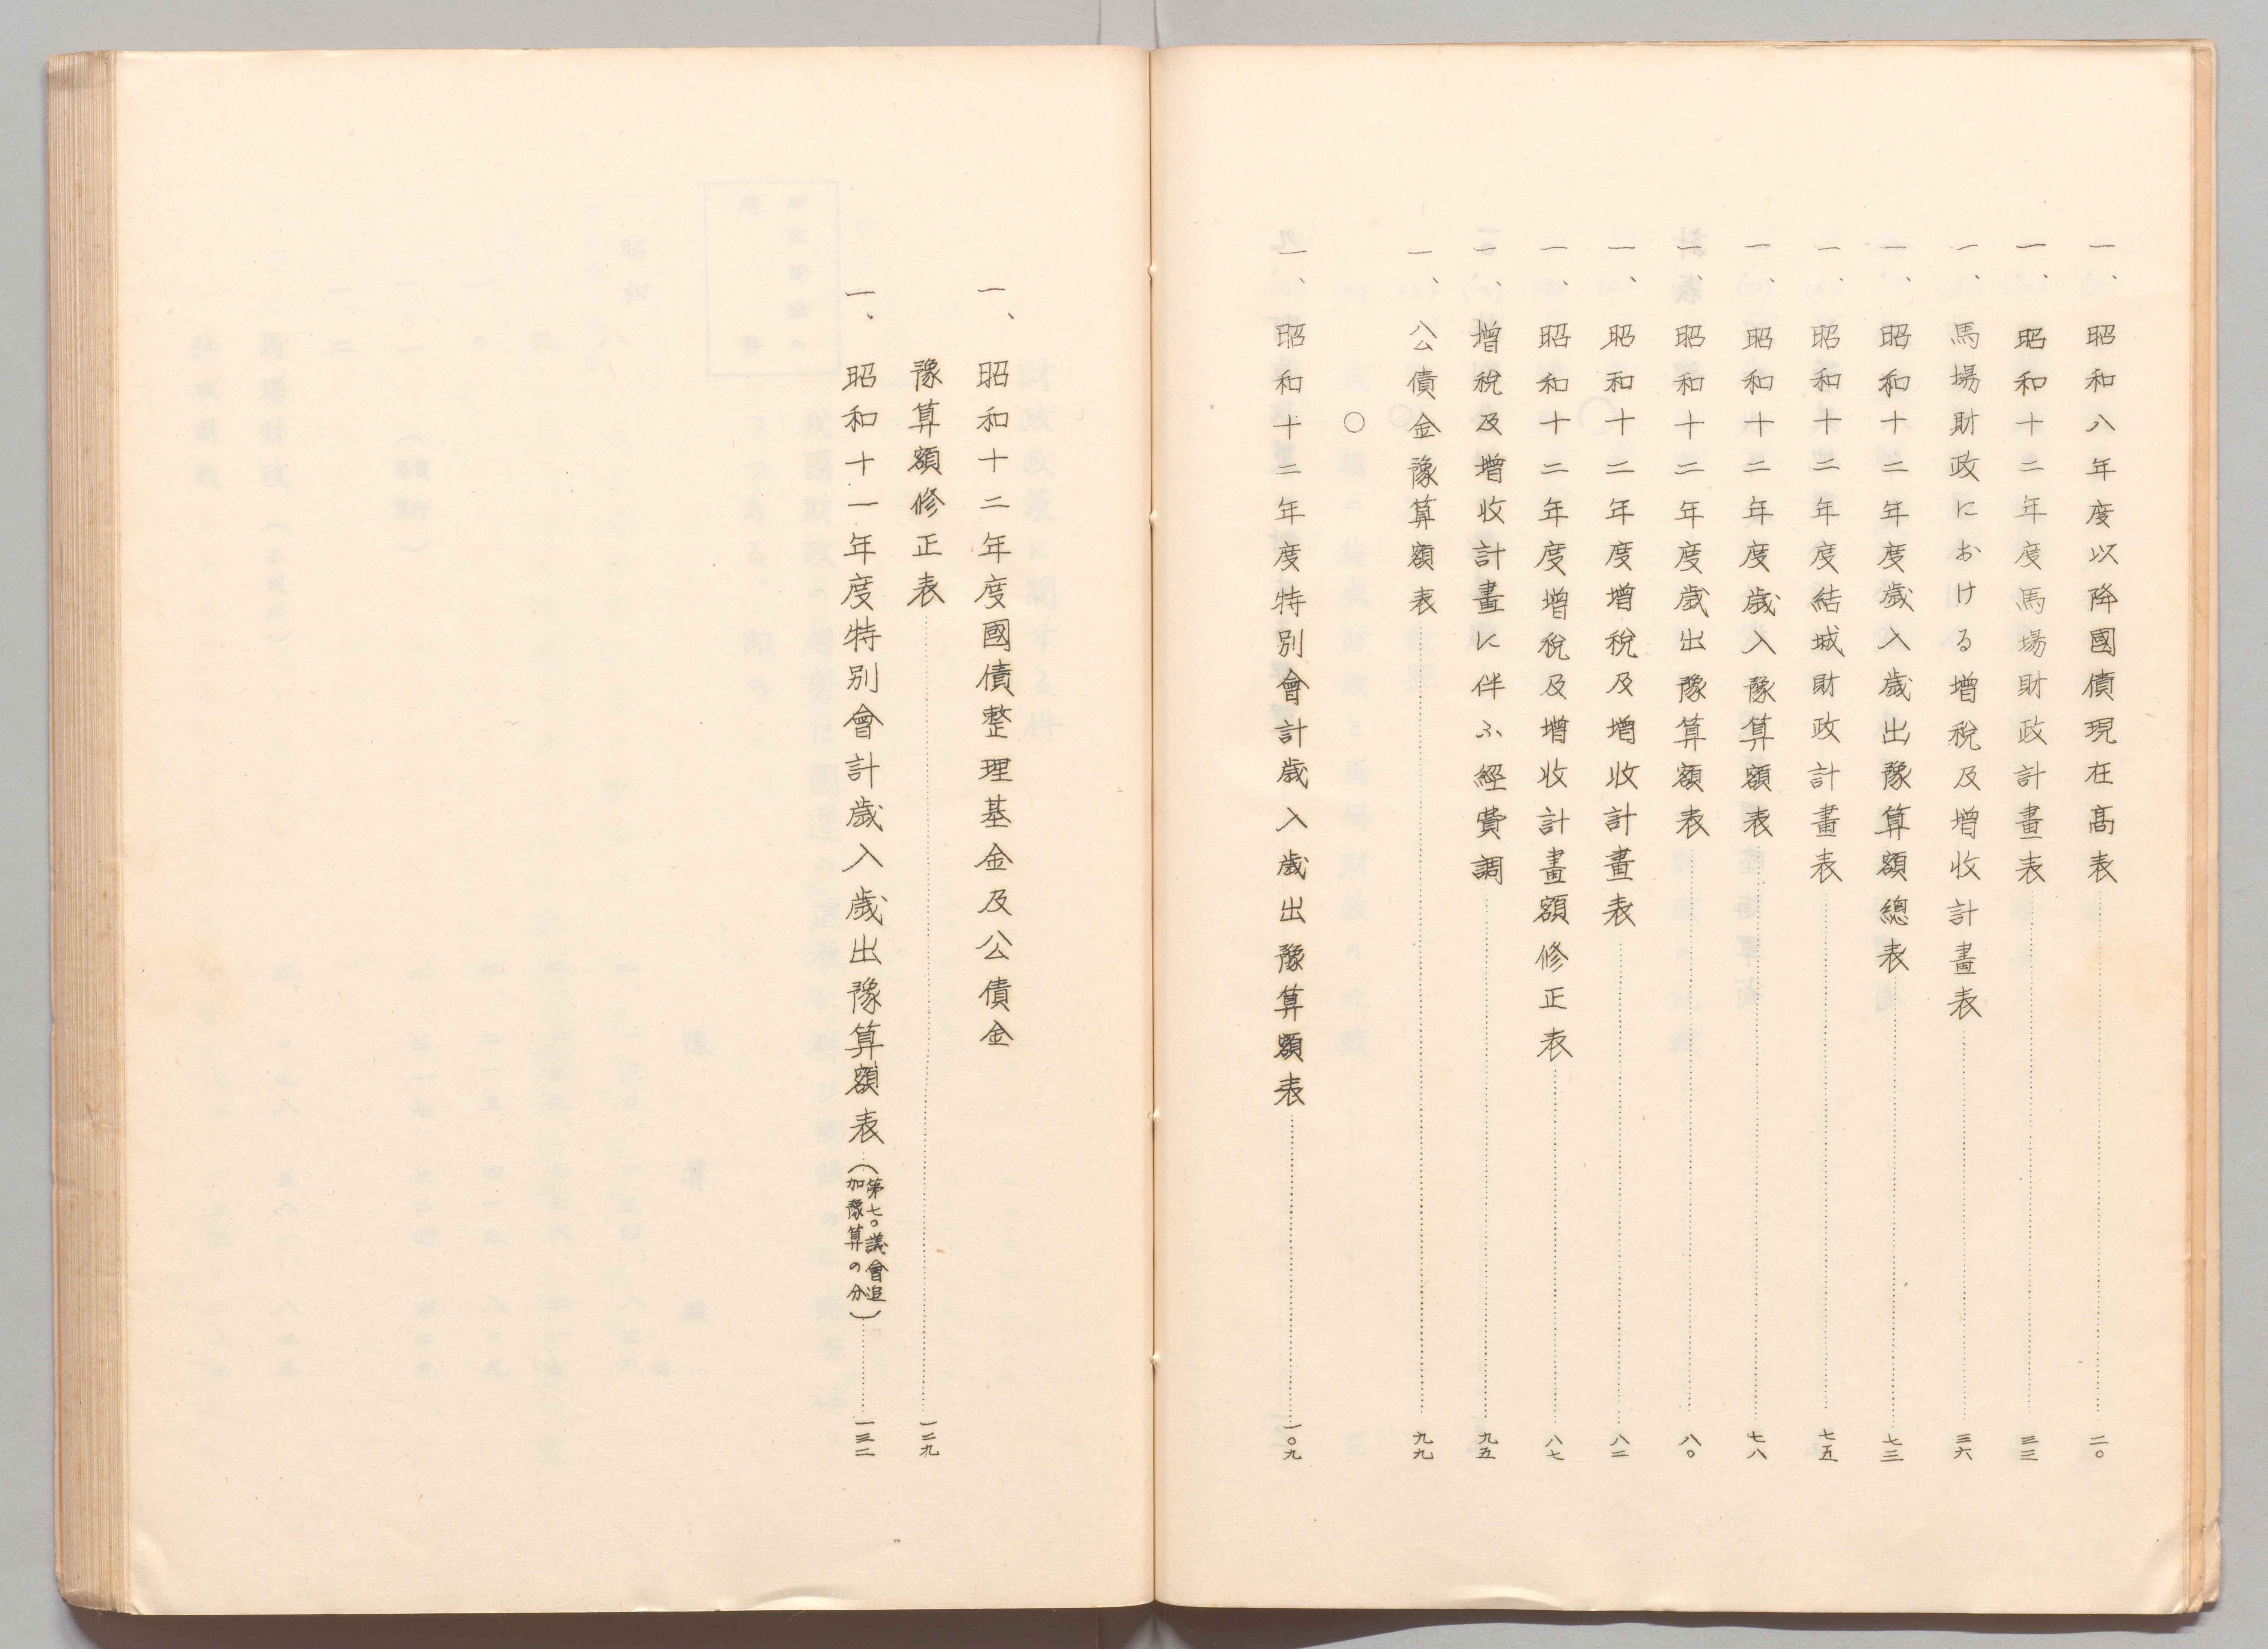 一、昭和八年度以降國債現在高表……二〇
一、昭和十二年度馬場財政計畫表……三三
一、馬場財政における増税及増收計畫表……三六
一、昭和十二年度歳入歳出豫算額總表……七三
一、昭和十二年度結城財政計畫表……七五
一、昭和十二年度歳入豫算額表……七八
一、昭和十二年度歳出豫算額表……八〇
一、昭和十二年度増税及増收計畫表……八二
一、昭和十二年度増税及増收計畫額修正表……八七
一、増税及増收計畫に伴ふ經費調……九五
一、公債金豫算額表……九九
〇
一、昭和十二年度特別會計歳入歳出豫算額表……一〇九
一、昭和十二年度國債整理基金及公債金
豫算額修正表……一二九
一、昭和十一年度特別會計歳入歳出豫算額表(第七〇議會追加豫算の分)……一三二